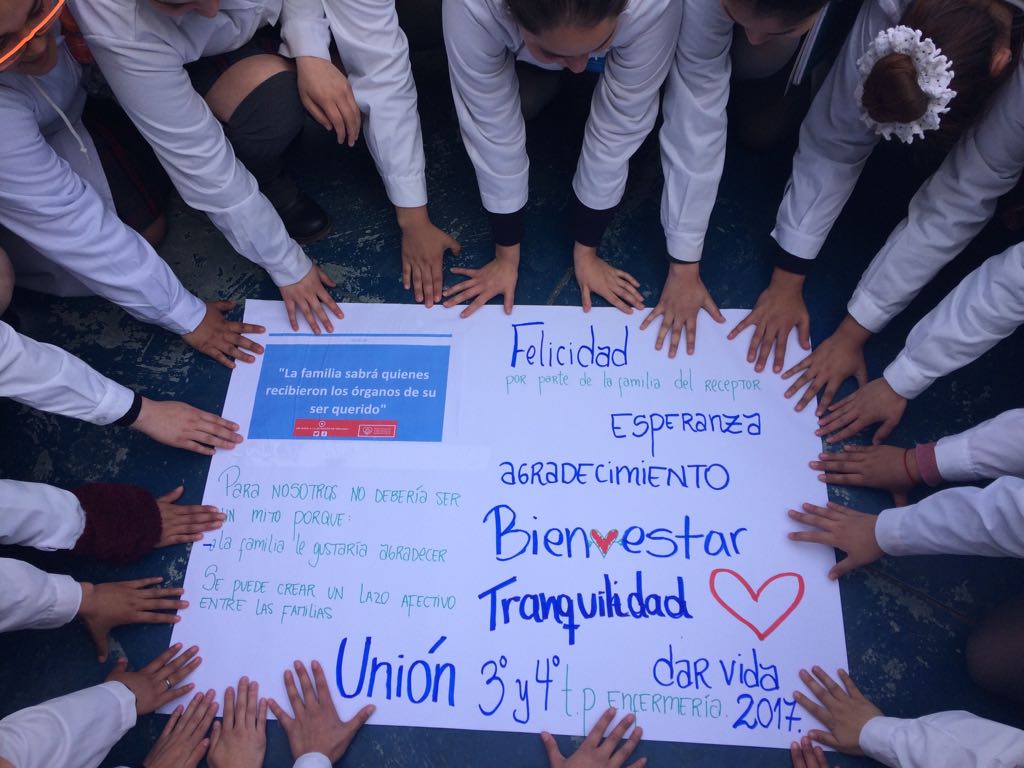 "La familia sabrá quienes
recibieron los órganos de su
ser querido"
Para nosotros no debería ser
un mito porque:
→ la familia le gustaría agradecer
Se puede crear un lazo afectivo
entre las familias
Felicidad
por parte de la familia del receptor
Esperanza
agradecimiento
Bien♥estar
Tranquilidad
Unión
3° y 4° t.p enfermería.
dar vida
2017.